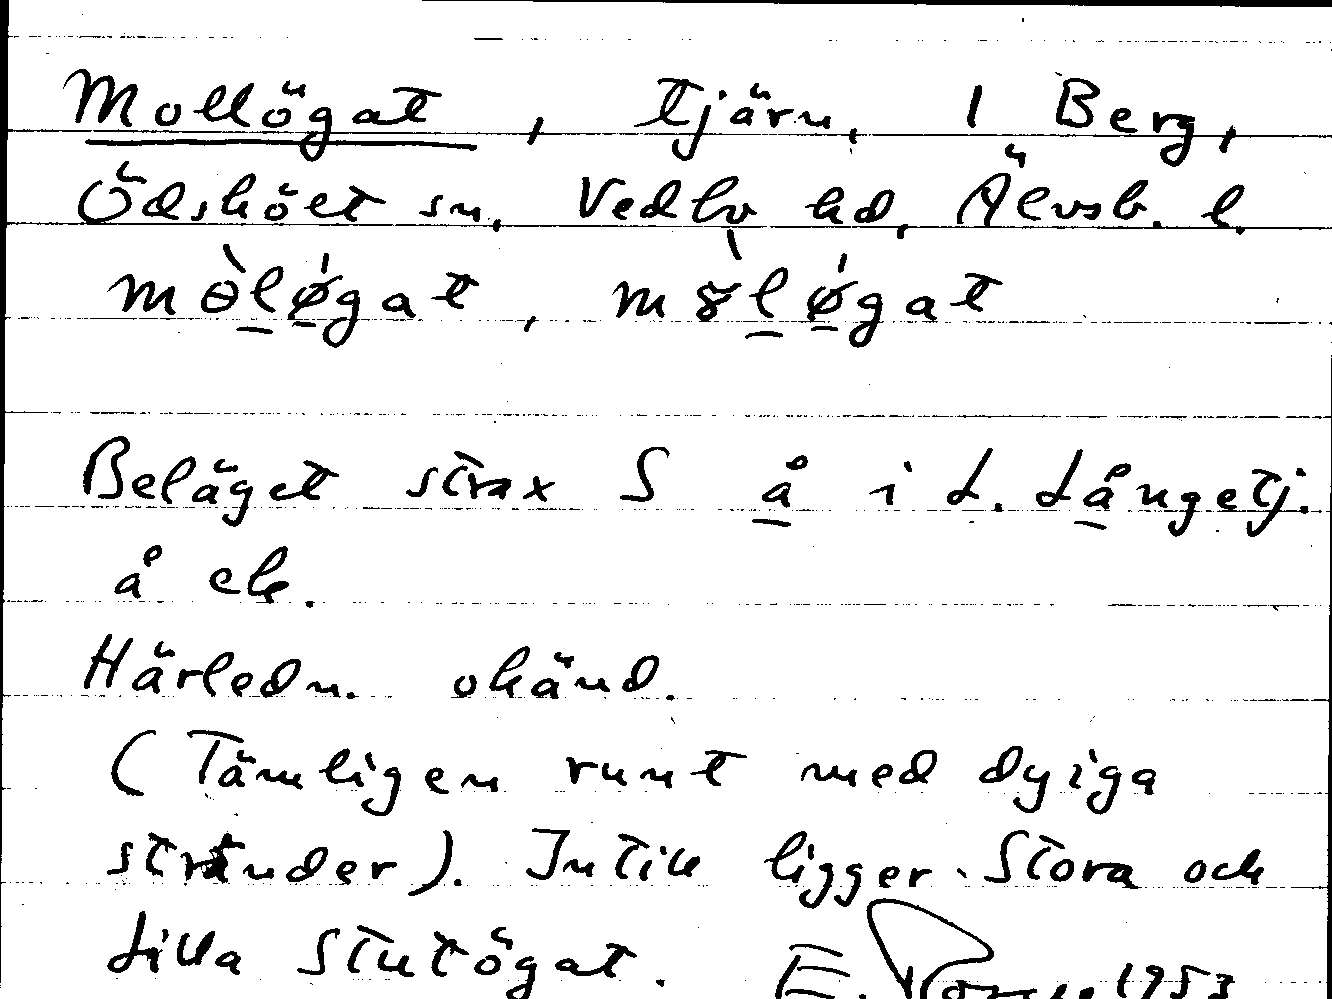 Mollögat, tjärn, 1 Berg,
Ödsköet sn, Vedbo hd, Älvsb. l.
mòlǿgat, m8̀lǿgat
Beläget strax S å i L. Långetj.
å ek.
Härledn. okänd.
(Tämligen runt med dyiga
stränder). Intill ligger Stora och
Lilla Stutögat. E. 1953